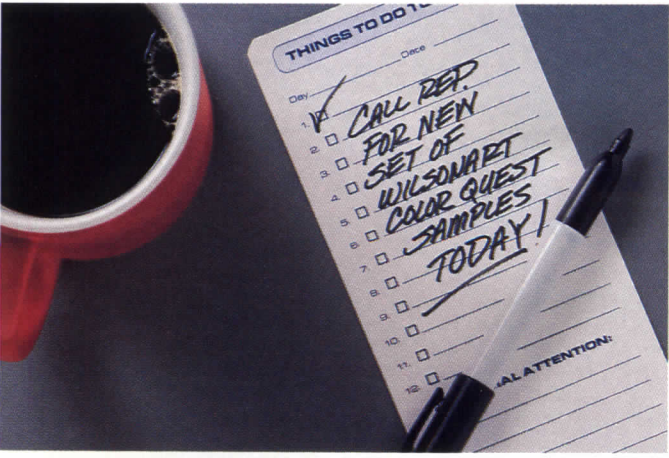 THINGS TO DO TO
Day Date
1. CALL REP.
2. FOR NEW
3. SET OF
4. WILSONART
5. COLOR QUEST
6. SAMPLES
7. TODAY!
8.
9.
10.
11.
12.
AL ATTENTION: